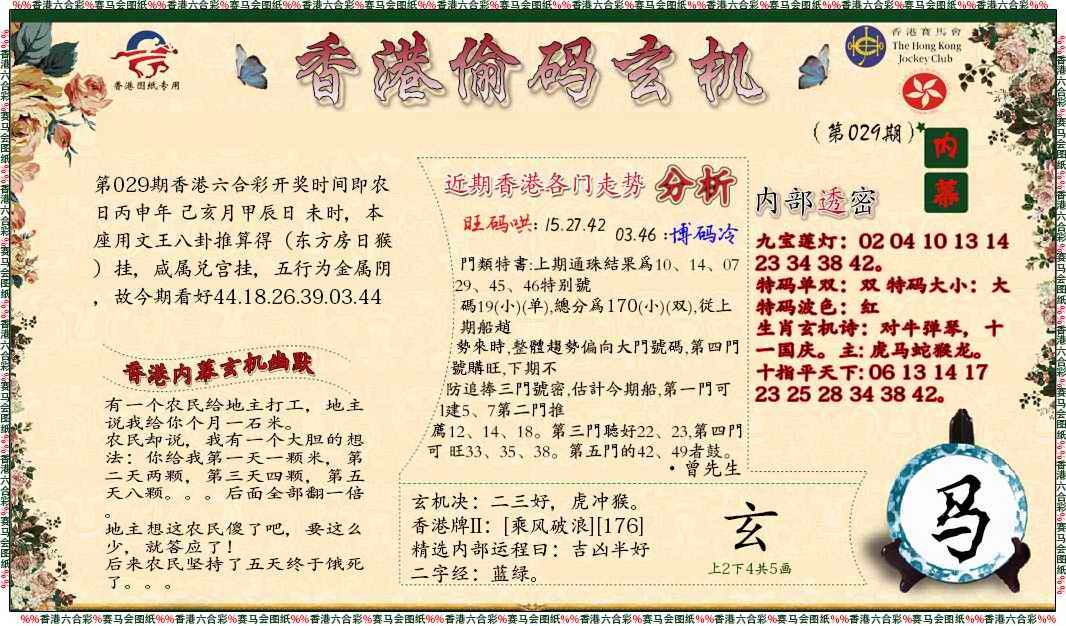 %%香港六合彩%赛马会图纸%%香港六合彩%赛马会图纸%%香港六合彩%赛马会图纸%%香港六合彩%赛马会图纸%%香港六合彩%赛马会图纸%%香港六合彩%赛马会图纸%%香港六合彩%%
香港图纸专用
香港偷码玄机
香港賽馬會
The Hong Kong
Jockey Club
(第029期)
内
幕
第029期香港六合彩开奖时间即农
日丙申年 己亥月甲辰日 未时，本
座用文王八卦推算得（东方房日猴
）挂，咸属兑宫挂，五行为金属阴
，故今期看好44.18.26.39.03.44
香港内幕玄机幽默
有一个农民给地主打工，地主
说我给你个月一石米。
农民却说，我有一个大胆的想
法：你给我第一天一颗米，第
二天两颗，第三天四颗，第五
天八颗。。。后面全部翻一倍
。
地主想这农民傻了吧，要这么
少，就答应了！
后来农民坚持了五天终于饿死
了。。。
近期香港各门走势 分析
旺码哄: 15.27.42
03.46 :博码冷
門類特書:上期通珠結果爲10、14、07
29、45、46特别號
碼19(小)(单),總分爲170(小)(双),從上
期船趙
勢來時,整體趨勢偏向大門號碼,第四門
號購旺,下期不
防追捧三門號密,估計今期船,第一門可
1建5、7第二門推
薦12、14、18。第三門聽好22、23,第四門
可 旺33、35、38。第五門的42、49者鼓。
·曾先生
玄机决：二三好，虎冲猴。
香港牌II：[乘风破浪][176]
精选内部运程曰：吉凶半好
二字经：蓝绿。
玄
上2下4共5画
内部透密
九宝莲灯：02 04 10 13 14
23 34 38 42。
特码单双：双 特码大小：大
特码波色：红
生肖玄机诗：对牛弹琴，十
一国庆。主:虎马蛇猴龙。
十指平天下:06 13 14 17
23 25 28 34 38 42。
马
%%香港六合彩%赛马会图纸%%香港六合彩%赛马会图纸%%香港六合彩%赛马会图纸%%香港六合彩%赛马会图纸%%香港六合彩%赛马会图纸%%香港六合彩%赛马会图纸%%香港六合彩%%